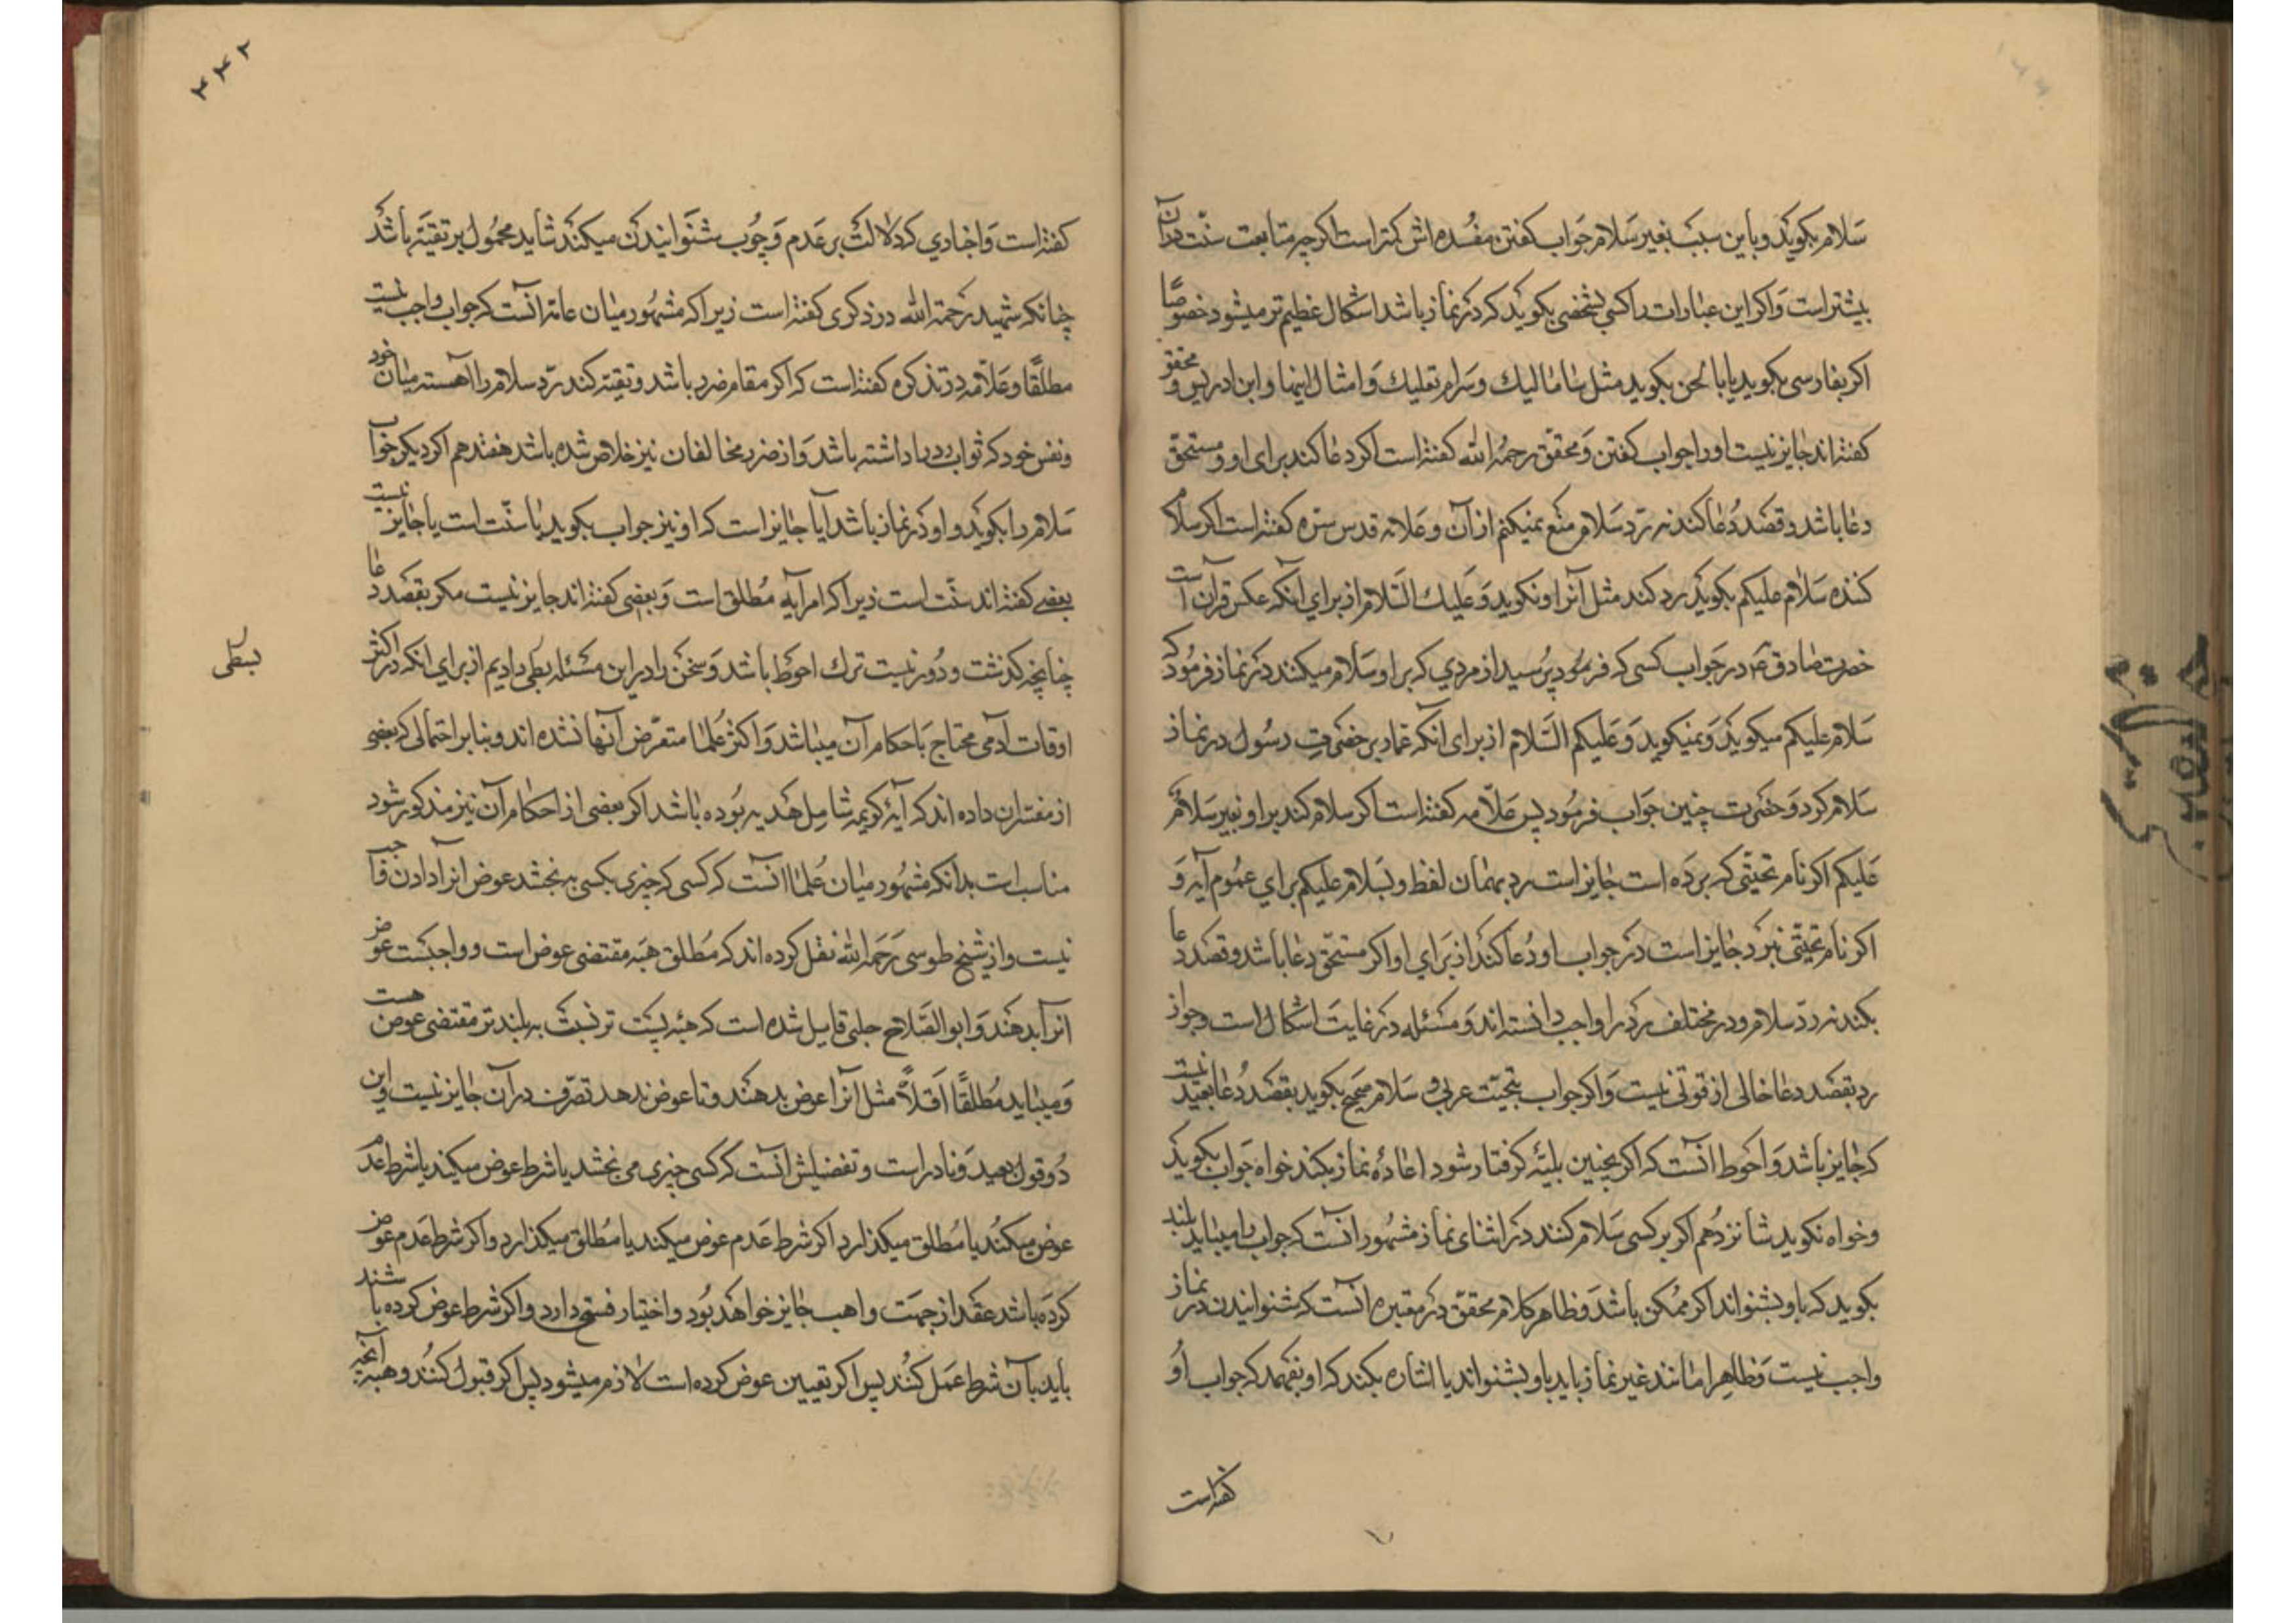 سلام بکوید و باین سبب بغیر سلام جواب کفتن مفسده اش کمتر است اکرچه متابعت سنّت در آن
بیشتر است و اکر این عبارات را کسی بشخصی بکوید که در نماز باشد اشکال عظیم تر میشود خصوصًا
اکر بفارسی بکوید یا با لحن بکوید مثل ساما لیک و سرام تعلیک و امثال اینها و ابن ادریس و محقق
کفته اند جایز نیست او را جواب کفتن و محقّق رحمه الله کفته است اکر دعا کند برای او و مستحقّ
دعا باشد و قصد دعا کند نه ردّ سلام منع نمیکنم از آن و علامه قدس سره کفته است اکر سلام
کننده سلام علیکم بکوید رد کند مثل آنرا و نکوید و علیک السّلام از برای آنکه عکس قرآن است
حضرت صادق ع در جواب کسی که پرسید از مردی که بر او سلام میکنند در نماز فرمود که
سلام علیکم میکوید و نمیکوید و علیکم السّلام از برای آنکه عمار بر حضرت رسول در نماز
سلام کرد و حضرت چنین جواب فرمود پس علّامه کفته است اکر سلام کند بر او بغیر سلامٌ
علیکم اکر نام تحیّتی که برده است جایز است رد بهمان لفظ و بسلام علیکم برای عموم آیه و
اکر نام تحیّتی نبرد جایز است در جواب او دعا کند از برای او اکر مستحقّ دعا باشد و قصد دعا
بکند نه ردّ سلام و در مختلف رد را واجب دانسته اند و مسئله در غایت اشکال است و جواز
رد بقصد دعا خالی از قوتی نیست و اکر جواب بتحیّت عربی و سلام صحیح بکوید بقصد دعا بعید نیست
که جایز باشد و احوط آنست که اکر بچنین بلیّه کرفتار شود اعادهٔ نماز بکند خواه جواب بکوید
و خواه نکوید شانزدهم اکر بر کسی سلام کنند در اثنای نماز مشهور آنست که جواب را میباید بلند
بکوید که باو بشنواند اکر ممکن باشد و ظاهر کلام محقّق در معتبره آنست که شنوانیدن در نماز
واجب نیست و ظاهرا مانند غیر نماز باید باو بشنواند یا اشاره بکند که او بفهمد که جواب او
کفته است
۳۴۲
کفته است و اخباری که دلالت بر عدم وجوب شنوانیدن میکنند شاید محمول بر تقیّه باشد
چنانکه شهید رحمة الله در ذکری کفته است زیرا که مشهور میان عامّه آنست که جواب واجب نیست
مطلقًا و علّامه در تذکره کفته است که اکر مقام ضرر باشد و تقیّه کند ردّ سلام را آهسته میان خود
و نفس خود که ثواب رد را داشته باشد و از ضرر مخالفان نیز خلاص شده باشد هفتدهم اکر دیکر جواب
سلام را بکوید و او در نماز باشد آیا جایز است که او نیز جواب بکوید یا سنّت است یا جایز نیست
بعضی کفته اند سنّت است زیرا که امر آیه مطلق است و بعضی کفته اند جایز نیست مکر بقصد دعا
چنانچه کذشت و دور نیست ترک احوط باشد و سخن را در این مسئله بطی دادیم از برای انکه در اکثر
بسطی
اوقات آدمی محتاج با حکام آن میباشد و اکثر علما متعرّض آنها نشده اند و بنا بر احتمالی که بعضی
از مفسّران داده اند که آیهٔ کریمه شامل هدیه بوده باشد اکر بعضی از احکام آن نیز مذکور شود
مناسب است بدانکه مشهور میان علما آنست که کسی که چیزی بکسی ببخشد عوض آنرا دادن واجب
نیست و از شیخ طوسی رحمه الله نقل کرده اند که مطلق هبه مقتضی عوض است و واجبست عوض
آنرا بدهند و ابو الصّلاح حلبی قایل شده است که هبهٔ پست تر نسبت به بلند تر مقتضی عوض هست
و میباید مطلقًا اقلّاً مثل آنرا عوض بدهند و تا عوض ندهد تصرّف در آن جایز نیست و این
دو قول بعید و نادر است و تفصیلش آنست که کسی چیزی می بخشد یا شرط عوض میکند یا شرط عدم
عوض میکند یا مطلق میکذارد اکر شرط عدم عوض میکند یا مطلق میکذارد و اکر شرط عدم عوض
کرده باشد عقد از جهت واهب جایز خواهد بود و اختیار فسخ دارد و اکر شرط عوض کرده باشند
باید بآن شرط عمل کنند پس اکر تعیین عوض کرده است لازم میشود پس اکر قبول کنند و هبه آنچه